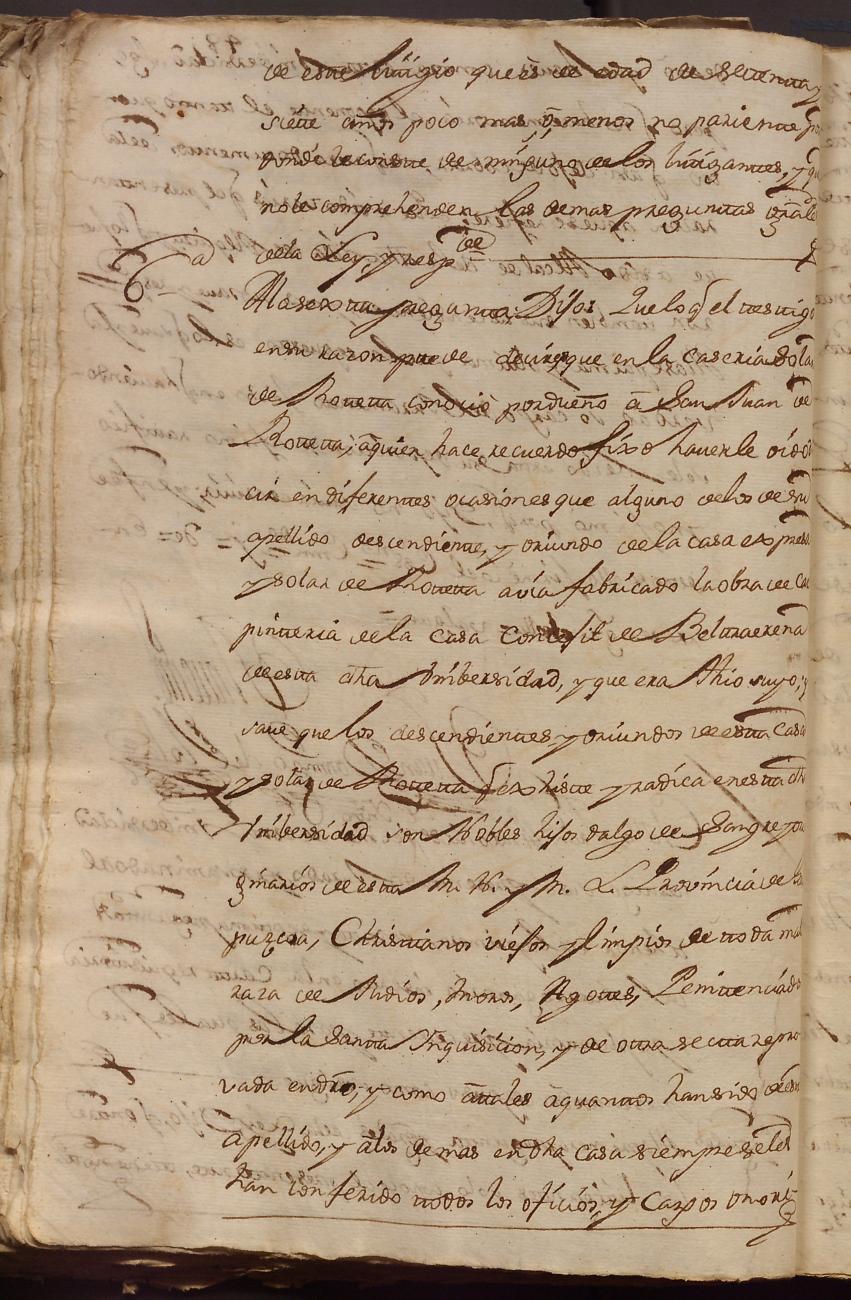 de este litigio que es de edad de setenta y
siete años poco mas, o, menos no pariente
donde le conste de ninguno de los litigantes, y q
no le comprehenden las demas preguntas grāles
de la Ley, y respde
6a A la sexta pregunta Dijo: Que lo q̄ el testigo
en su razon puede decir es que en la caseria solar
de Rotteta conocio por dueño a San Juan de
Rotteta, aquien hace recuerdo fixo haverle oido
cir en diferentes ocasiones que alguno de los de su
apellido descendiente, y oriundo de la casa expresa
y solar de Rotteta avia fabricado la obra de Car
pinteria de la casa Concejil de Beltraerena
de esta dha Vnibersidad, y que era thio suyo, y
save que los descendientes y oriundos de esta Casa
y solar de Rotteta q̄ exhiste y radica en esta dha
Vnibersidad son Nobles hijos dalgo de Sangre y o
ginarios de esta M. N. y M. L. Provincia de
puzcoa, Christianos viejos y limpios de toda mala
raza de Judios, Moros, Agotes, Penitenciados
por la Santa Inquisicion, y de otra secta repro
vada en dro, y como a tales a quantos han sido de su
apellido, y a los demas en dha casa siempre se les
han conferido todos los oficios, y Cargos onori